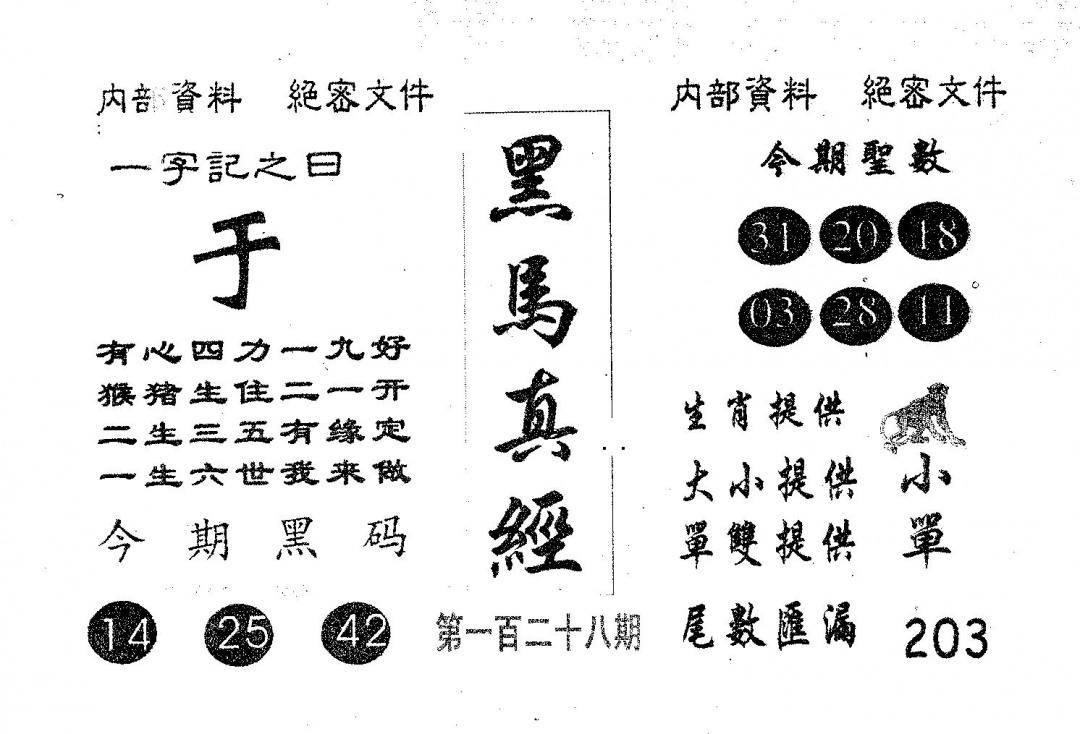 内部資料 絕密文件
一字記之曰
于
有心四力一九好
猴猪生住二一开
二生三五有缘定
一生六世我来做
今期黑码
14 25 42
黑馬真經
第一百二十八期
内部資料 絕密文件
今期聖數
31 20 18
03 28 11
生肖提供
大小提供 小
單雙提供 單
尾數匯漏 203